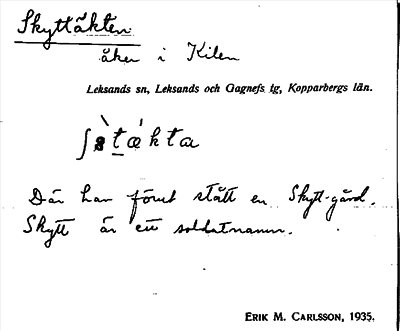 Skyttäkten
åker i Kilen
Leksands sn, Leksands och Gagnefs tg, Kopparbergs län.
Där har förut stått en Skytt-gård.
Skytt är ett soldatnamn.
ERIK M. CARLSSON, 1935.